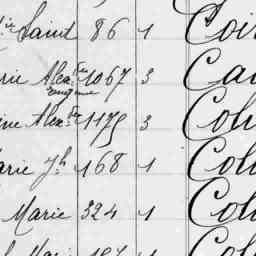 Saint 86 1 Coi
rie Alex.dre 1067 3 Cau
Eugénie
ine Alex.dre 1175 3 Col
arie Jh 168 1 Col
Marie 324 1 Col
1 Col